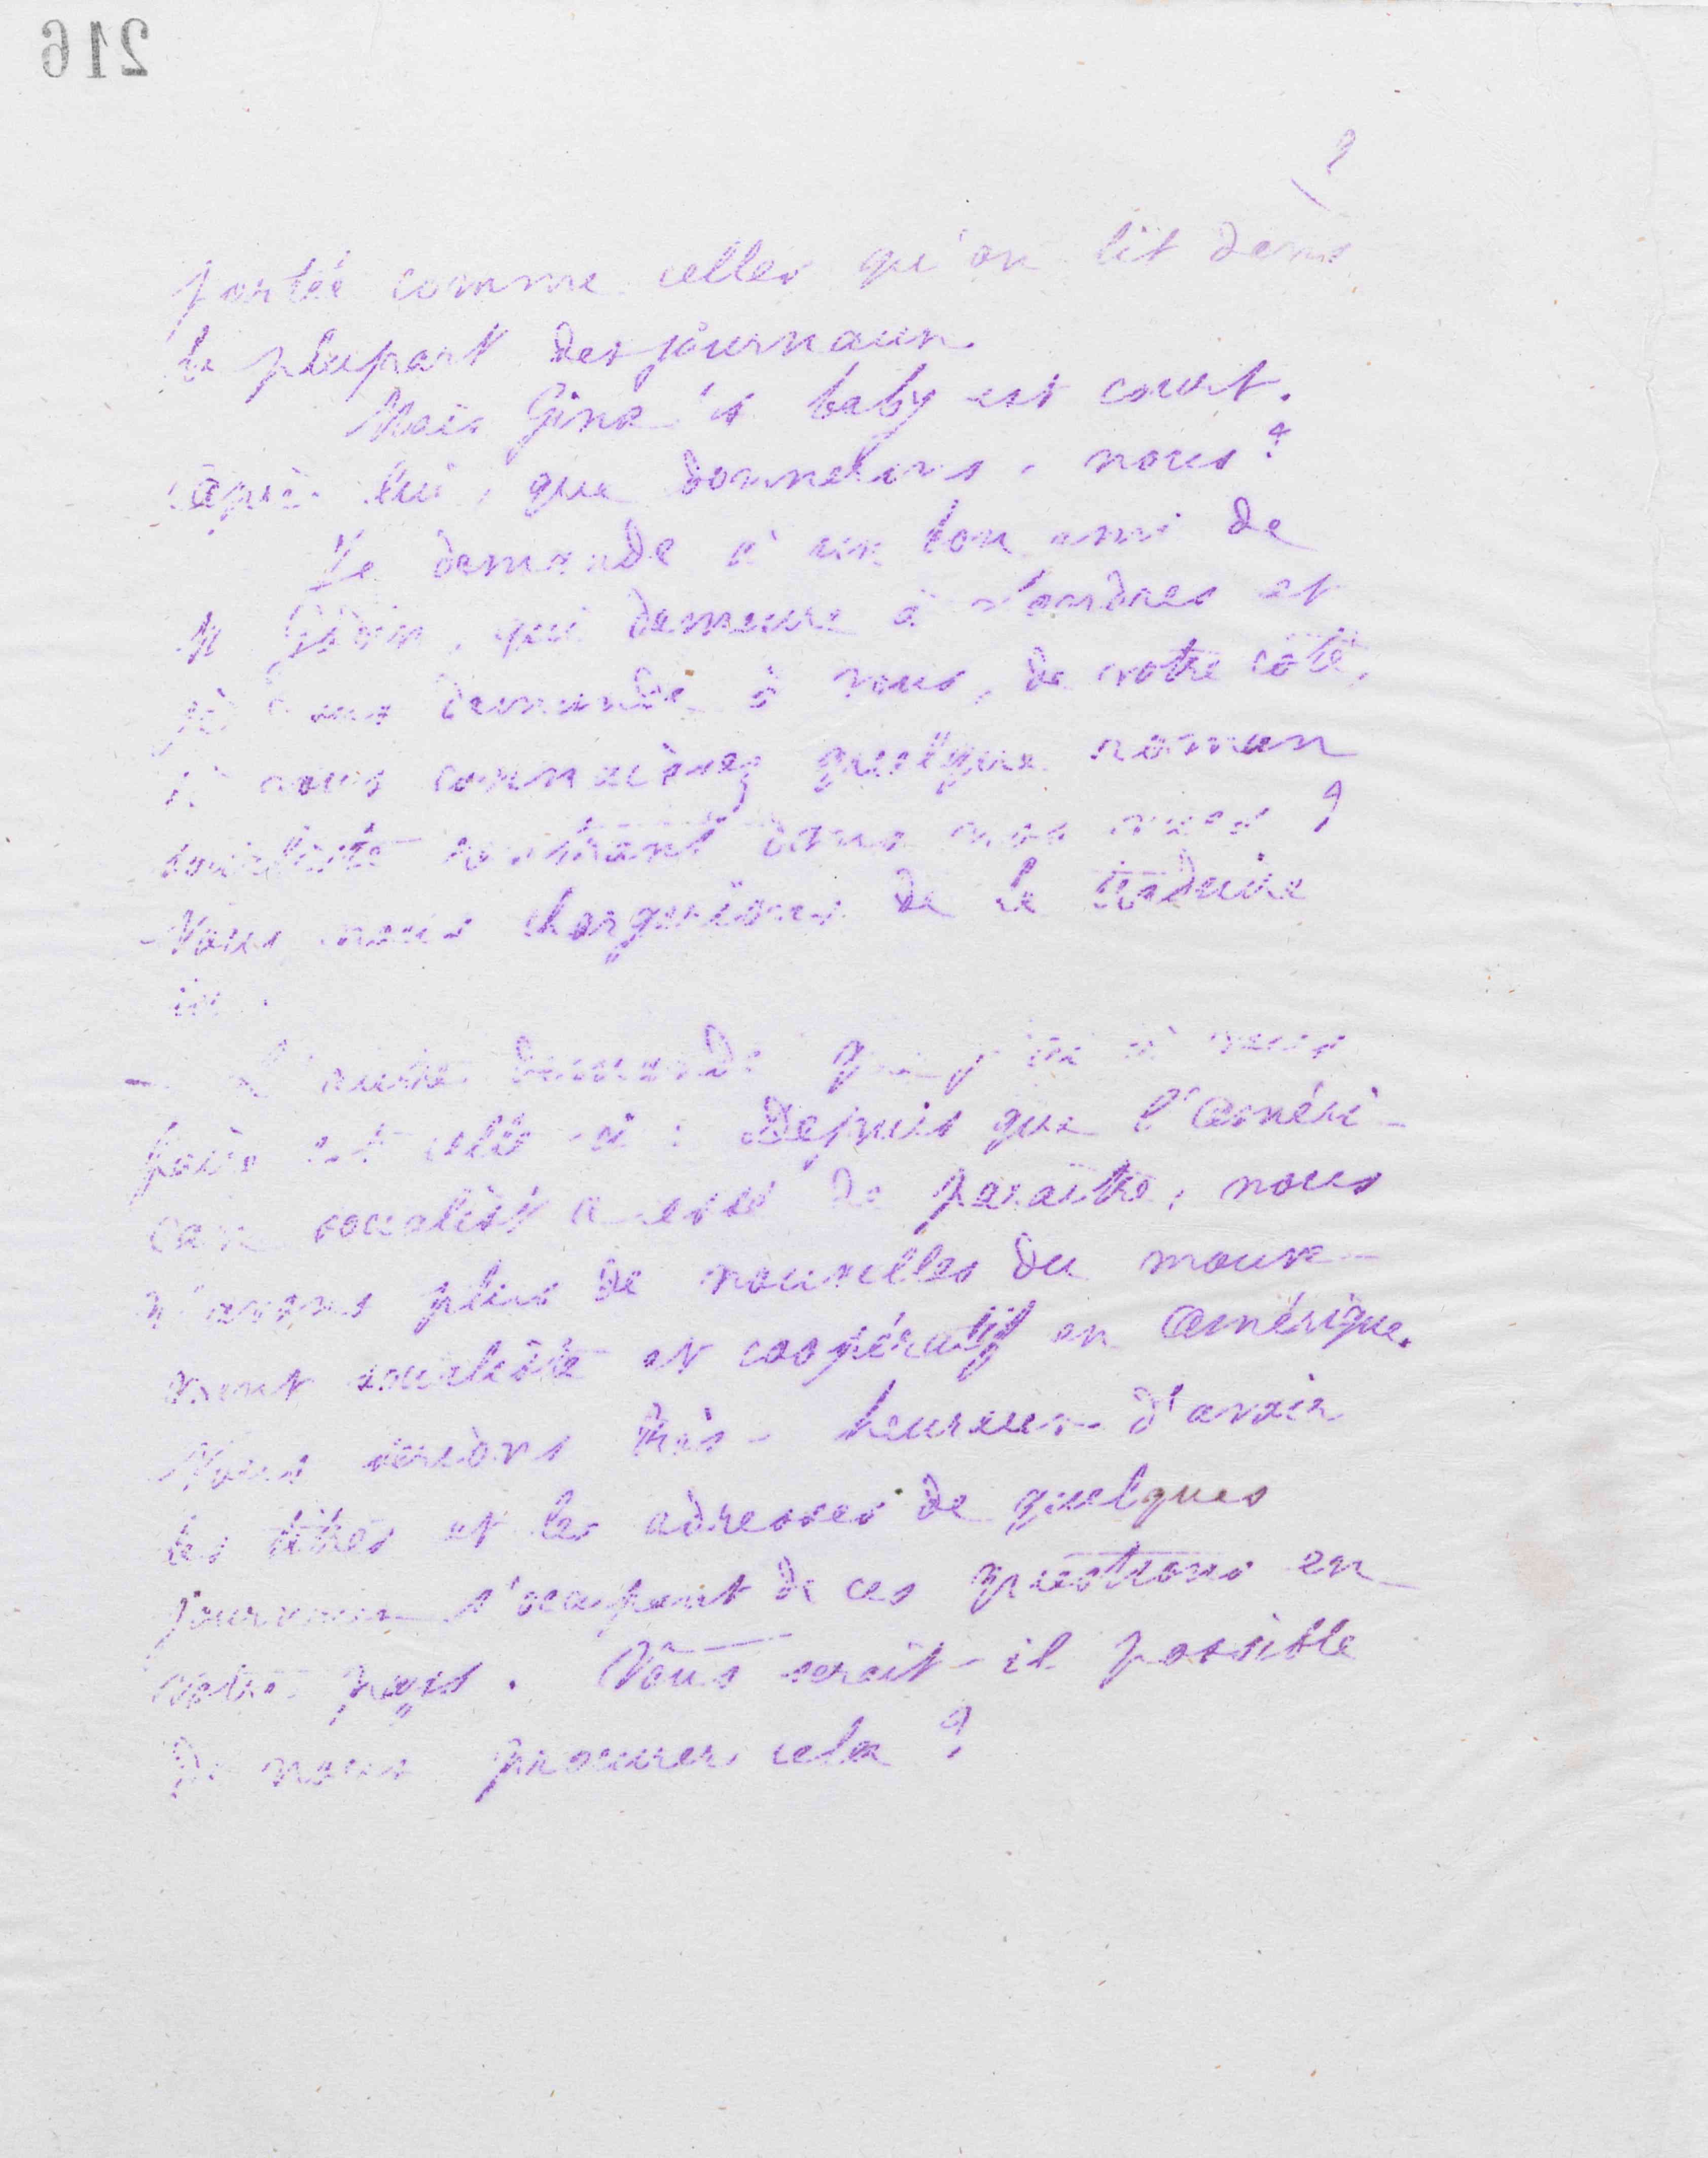 216
portée comme celles qu'on lit dans
la plupart des journaux.
Mais Ginx's baby est court.
Après lui, que donnerions-nous?
Je demande à un bon ami de
M Godin, qui demeure à Londres et
je vous demande à vous, de votre côté,
si vous connaissez quelque roman
socialiste rentrant dans nos vues?
Nous nous chargerions de le traduire
ici.
- L'autre demande que j'ai à vous
faire est celle-ci: Depuis que l'Améri-
can socialist a cessé de paraître, nous
n'avons plus de nouvelles du mouve-
ment socialiste et coopératif en Amérique.
Nous serions très-heureux d'avoir
les titres et les adresses de quelques
journaux s'occupant de ces questions en
votre pays. Vous serait-il possible
de nous procurer cela?